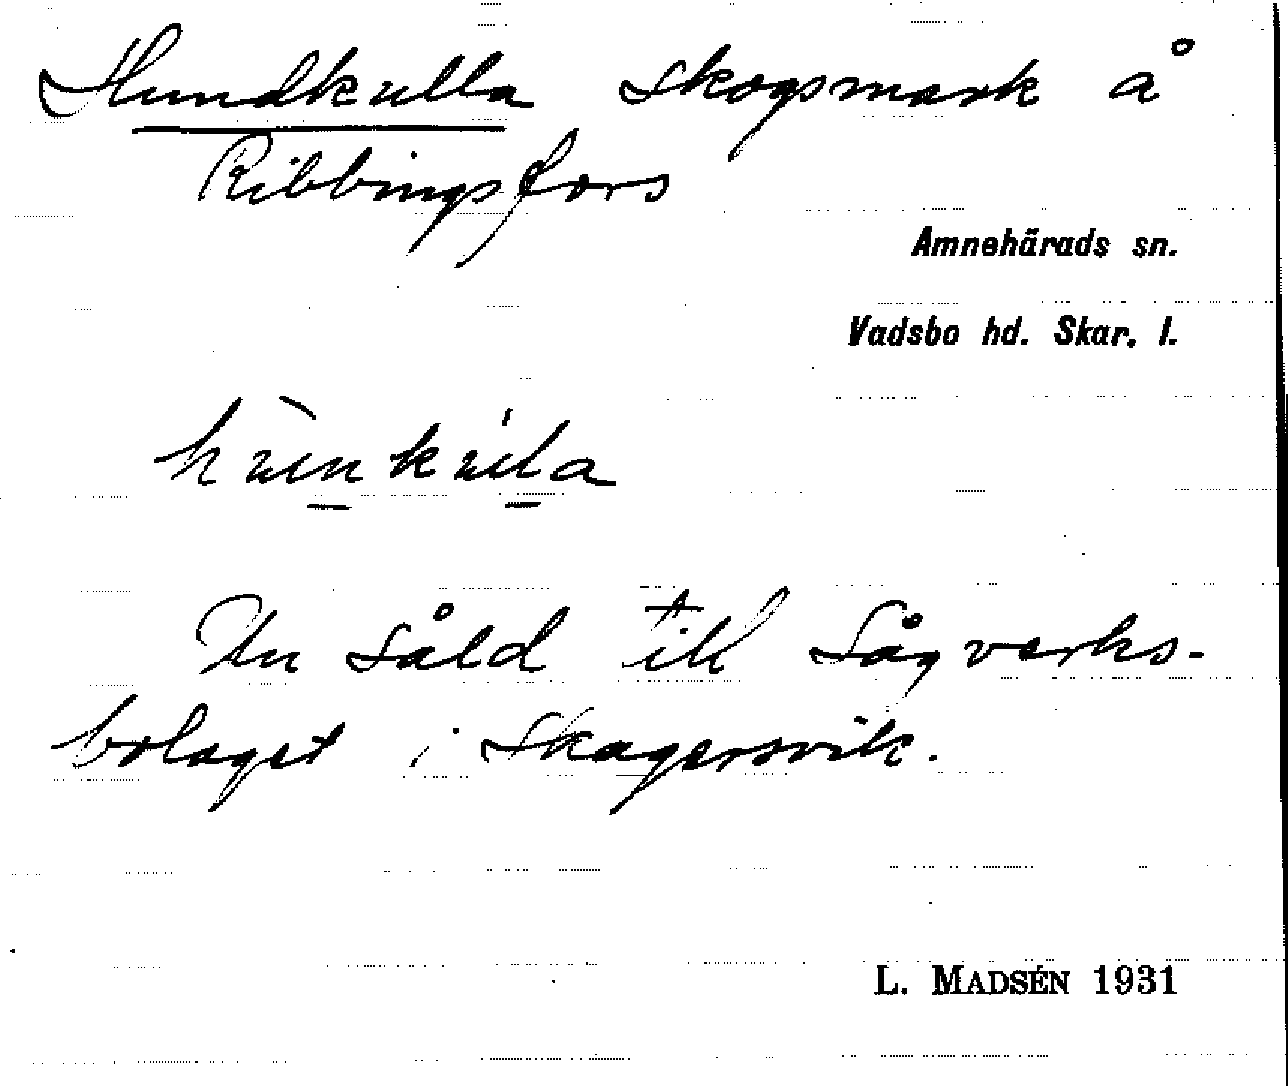 Hundkulla skogsmark å
Ribbingsfors
Amnehärads sn.
Vadsbo hd. Skar. l.
Nu såld till Sågverks-
bolaget i Skagersvik.
L. MADSÉN 1931